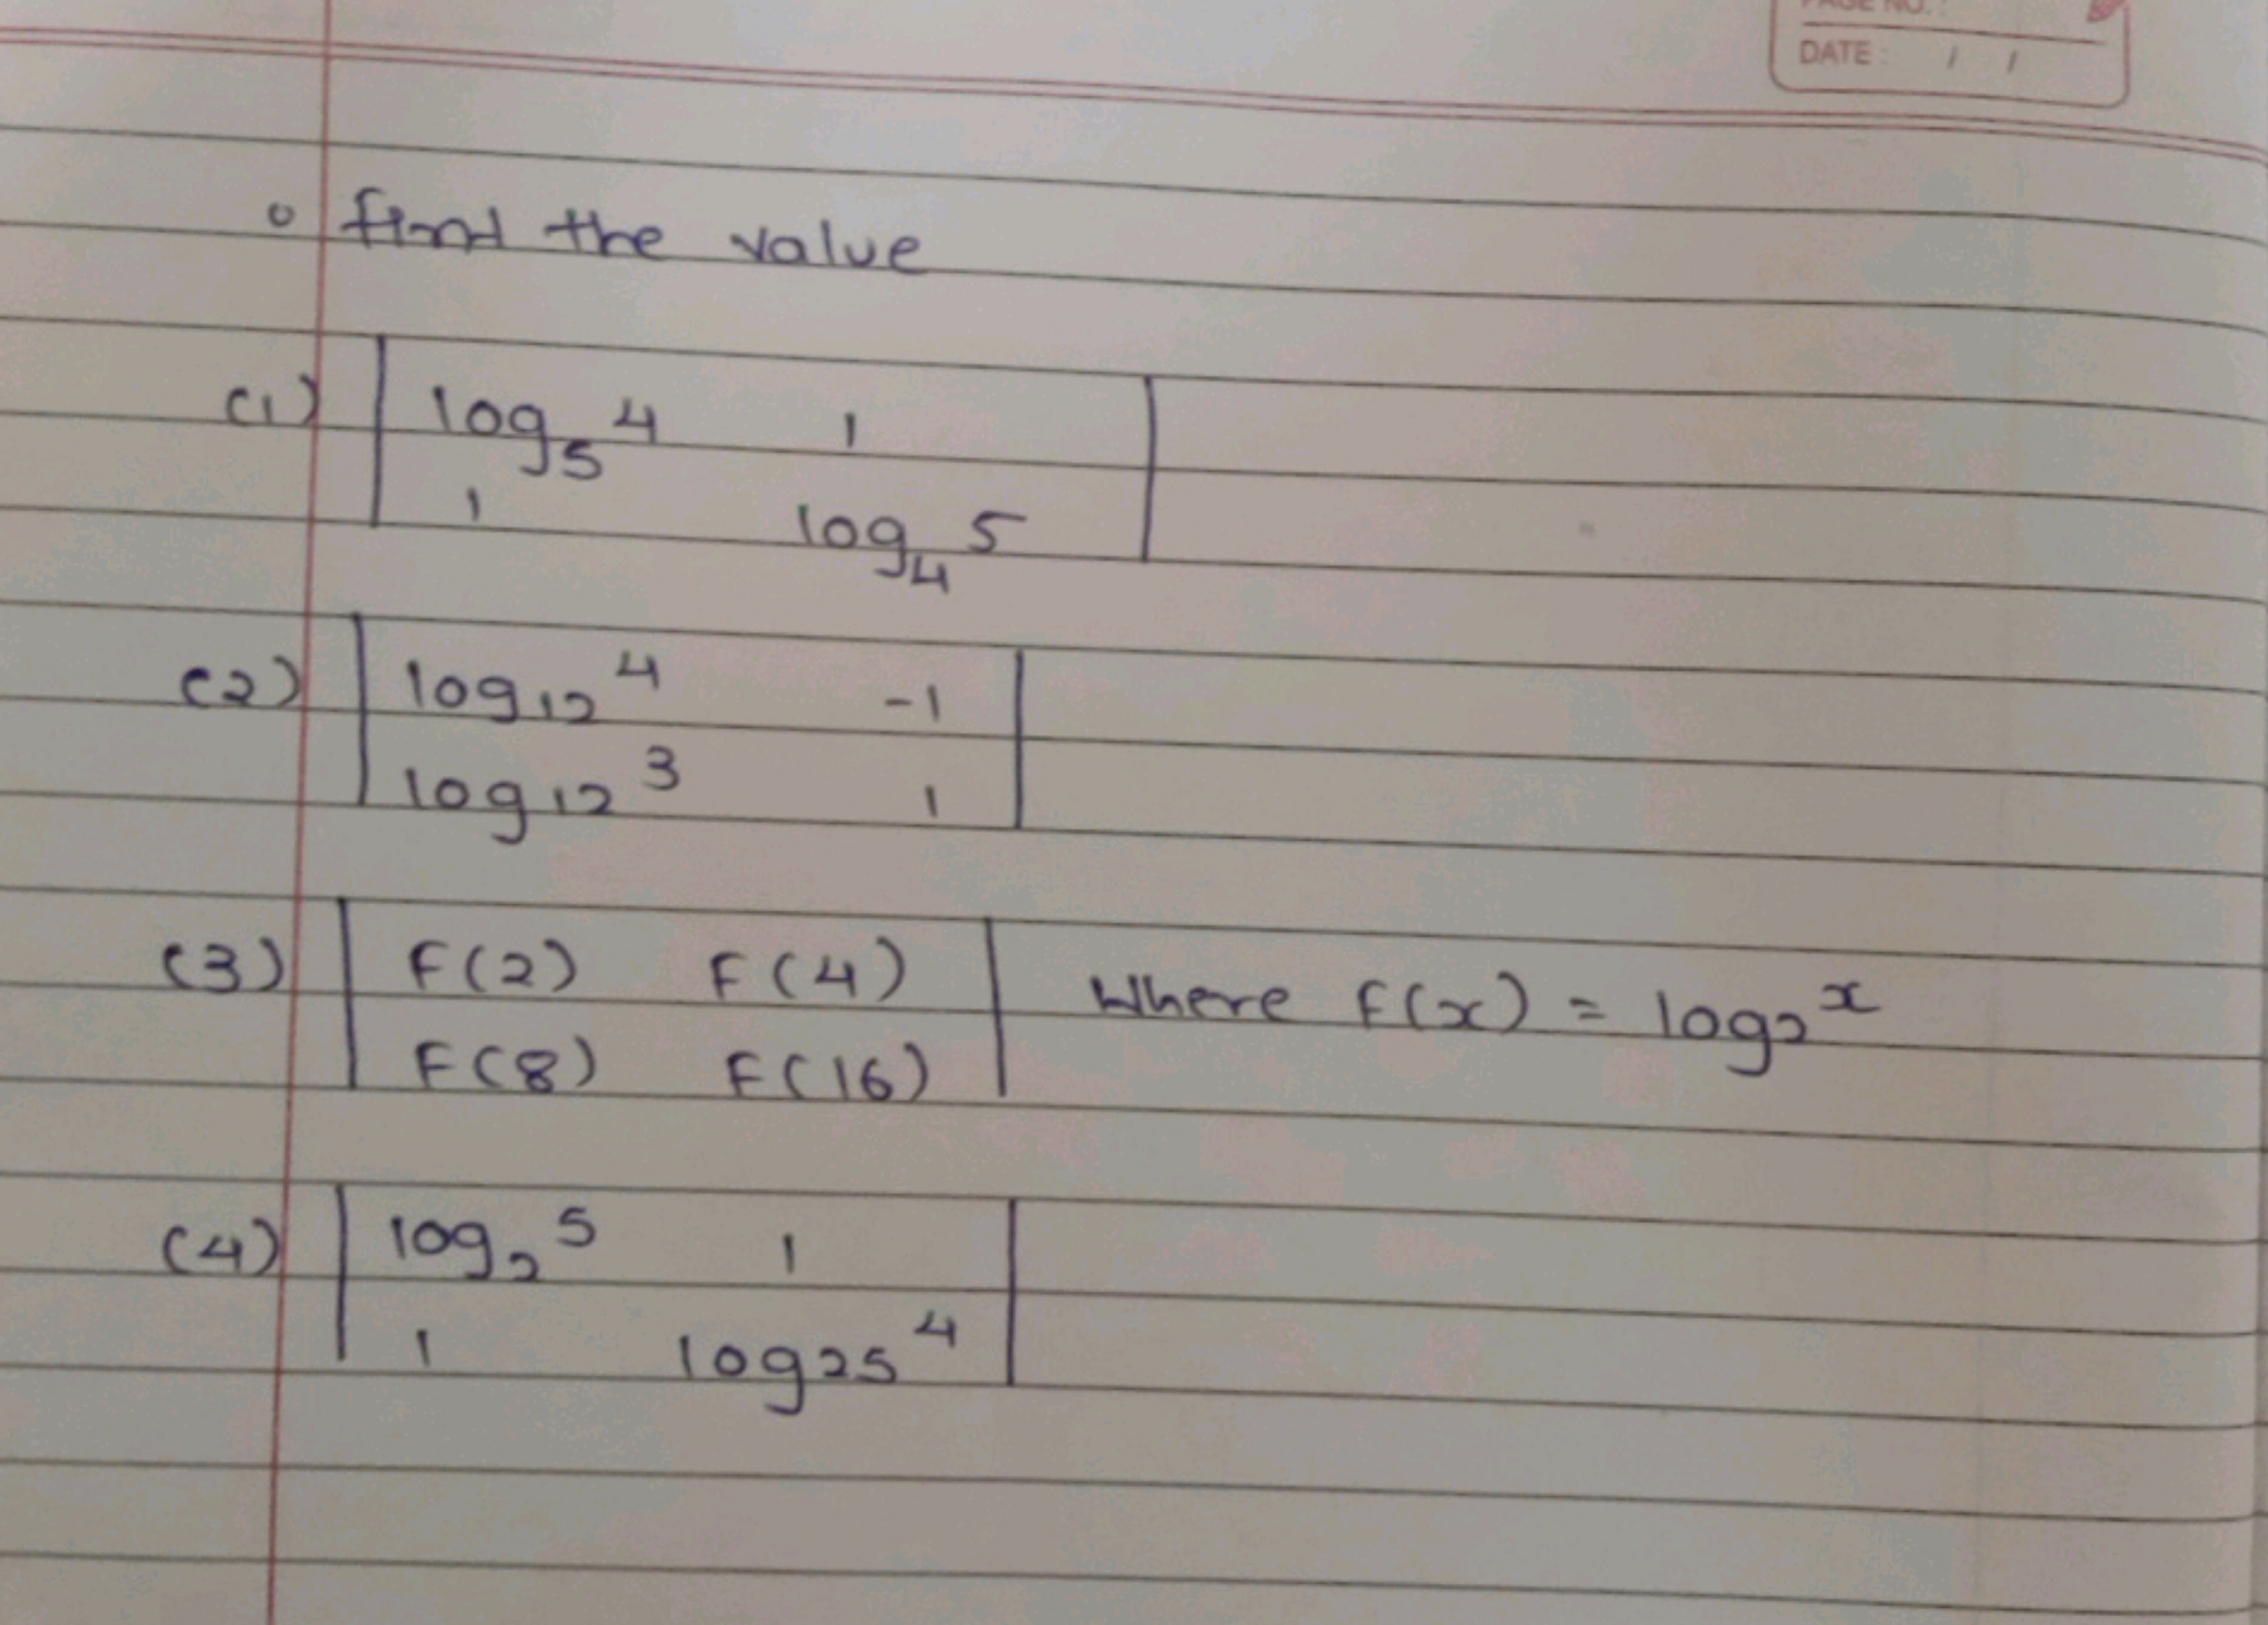 PAGE NO.:
DATE: / /
o find the value
(1) | log₅4 1 |
| 1 log₄5 |
(2) | log₁₂4 -1 |
| log₁₂3 1 |
(3) | F(2) F(4) | Where f(x) = log₂x
| F(8) F(16) |
(4) | log₂5 1 |
| 1 log₂₅4 |